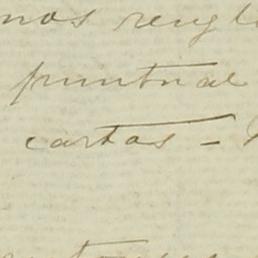 nos rengl
puntual
cartas –